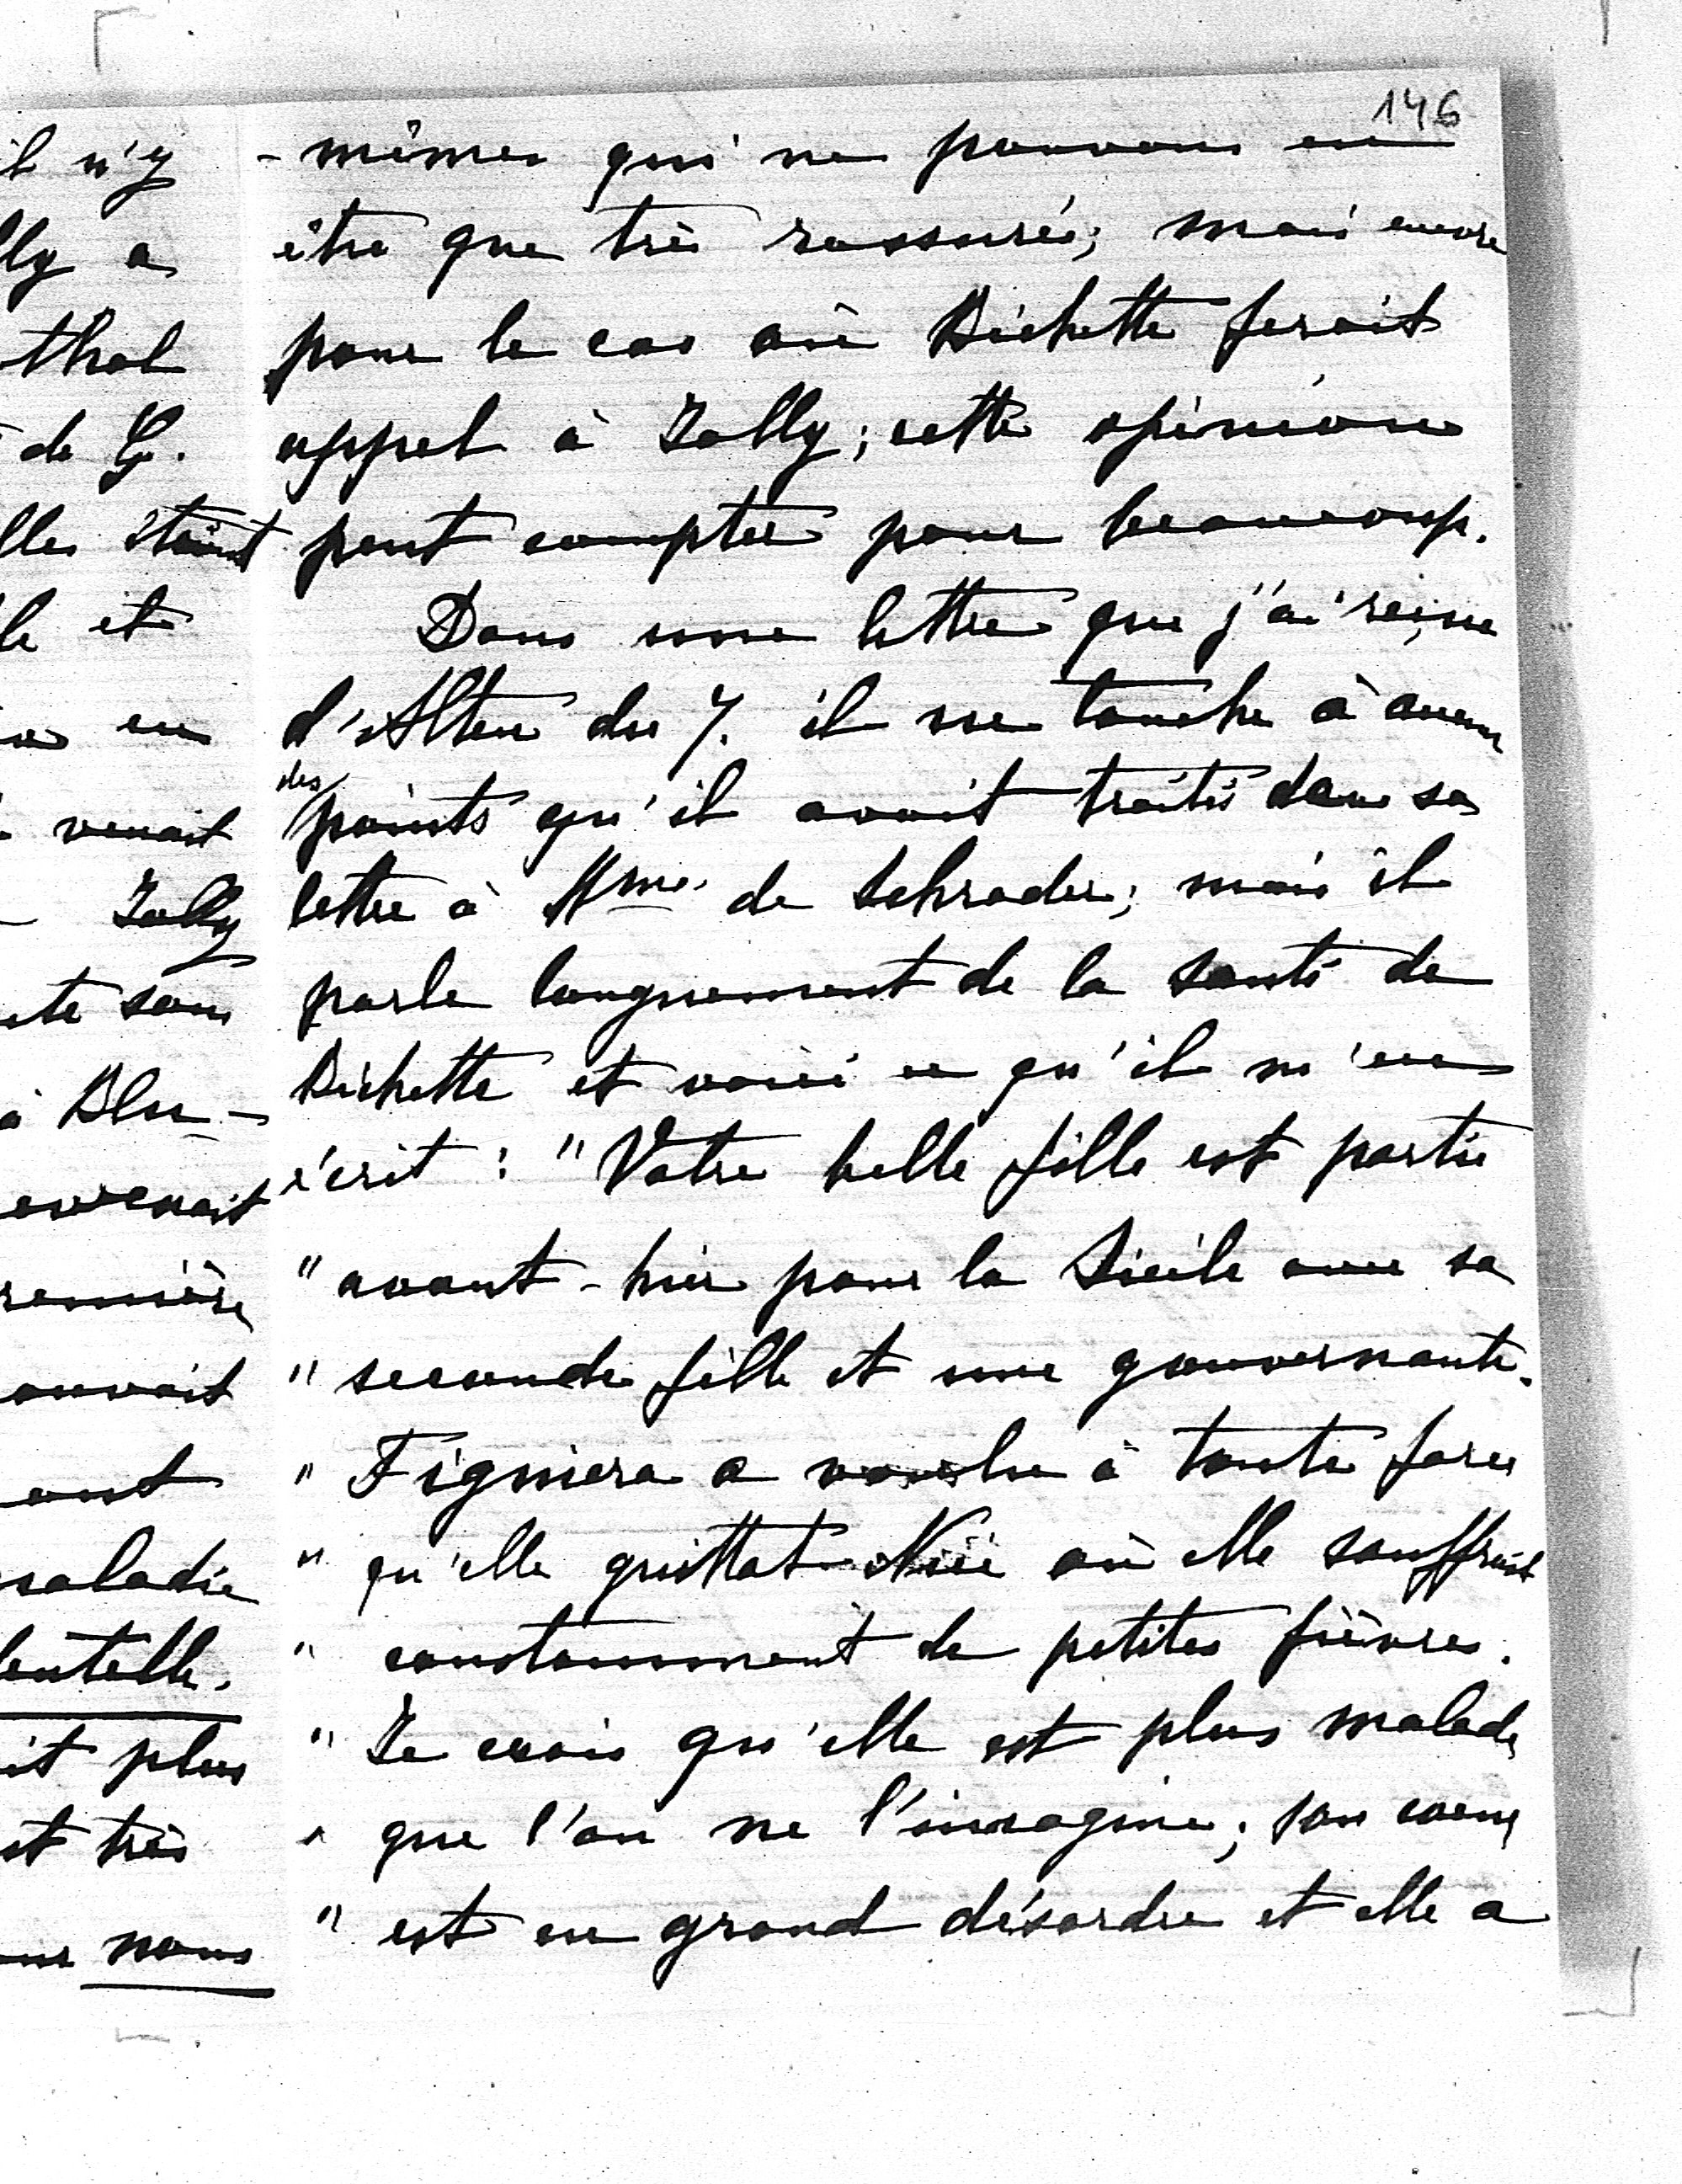 146
-mêmes qui ne pouvons en
être que très rassurés; mais encore
pour le cas où Dichette ferait
appel à Jolly; cette opinion
peut compter pour beaucoup.
Dans une lettre que j'ai reçue
d'Alten du 7. il ne touche à aucun
des points qu'il avait traités dans sa
lettre à Mme. de Schrader; mais il
parle longuement de la santé de
Dichette et voici ce qu'il m'en
écrit : "Votre belle fille est partie
"avant-hier pour la Sicile avec sa
"seconde fille et une gouvernante.
"Figuiera a voulu à toute force
"qu'elle quittat Nice où elle souffrait
"constamment de petites fièvres.
"Je crois qu'elle est plus malade
"que l'on ne l'imagine; son coeur
"est en grand désordre et elle a
il n'y
lly a
thal
de G.
lles étaient
le et
en
venait
Jolly
ete sans
à Blu-
ouvait
maladie
it plus
st très
nous